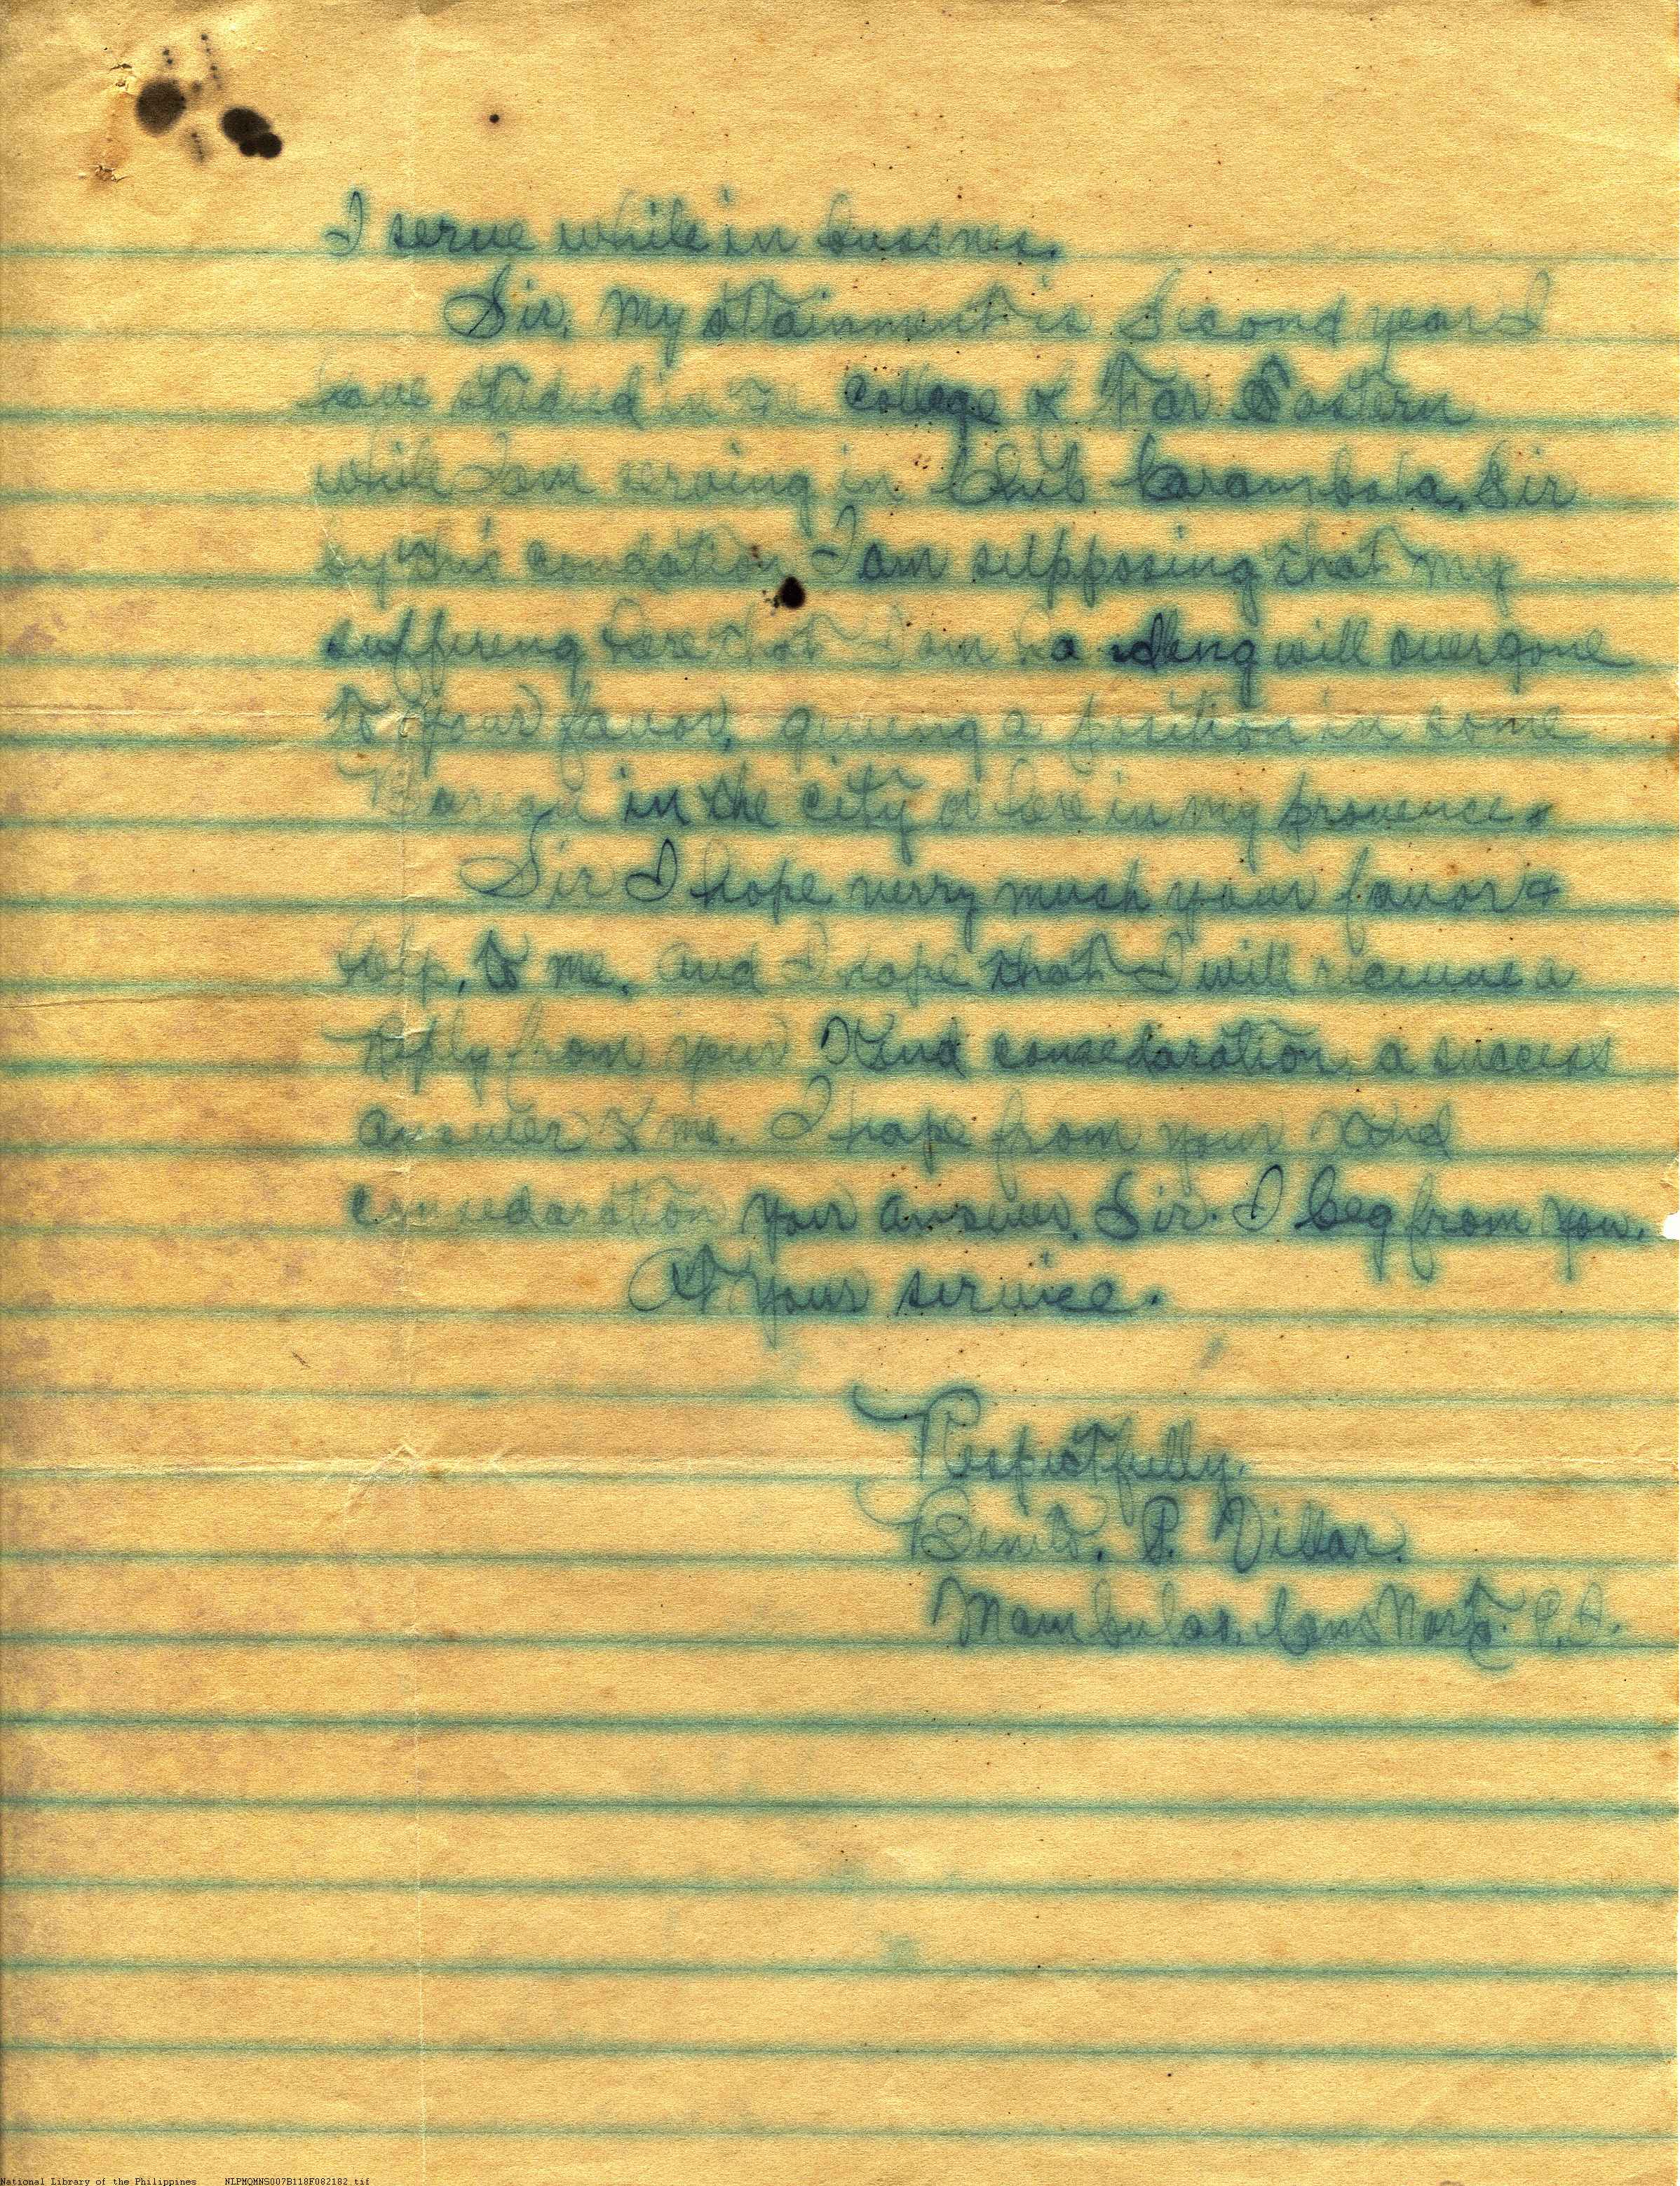 I serve while in bussnes.
Sir. My attainment is Second year I
have studied in the college of Far Eastern
while I am serving in Club Carambola. Sir
by this condation I am supposing that my
suffering here that I am will overgone
to your favor, giving a position in some
in the city or here in my provence.
Sir I hope verry much your favor &
help, to me. and I hope that I will a
reply from your Kind consedaration a success
answer to me. I hope from your kind
consedaration your answer. Sir. I beg from you.
At your service.
Respectfully.
Benito. P. Villar.
Mambulao. Cams Norte. P.I.
National Library of the Philippines NLPMQMNS007B118F082182.tif